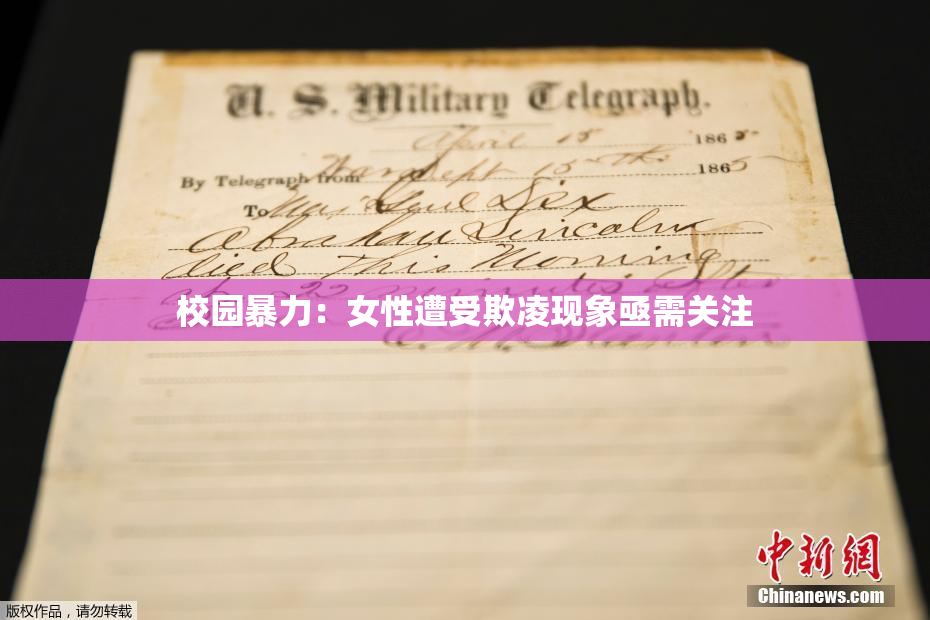 U. S. Military Telegraph.
April 15 1865
By Telegraph from War Dept 15th 1865
To Maj Genl Dix
Abraham Lincoln
died This Morning
at 22 minutes after
校园暴力：女性遭受欺凌现象亟需关注
E. M. Stanton
中新网
Chinanews.com
版权作品，请勿转载